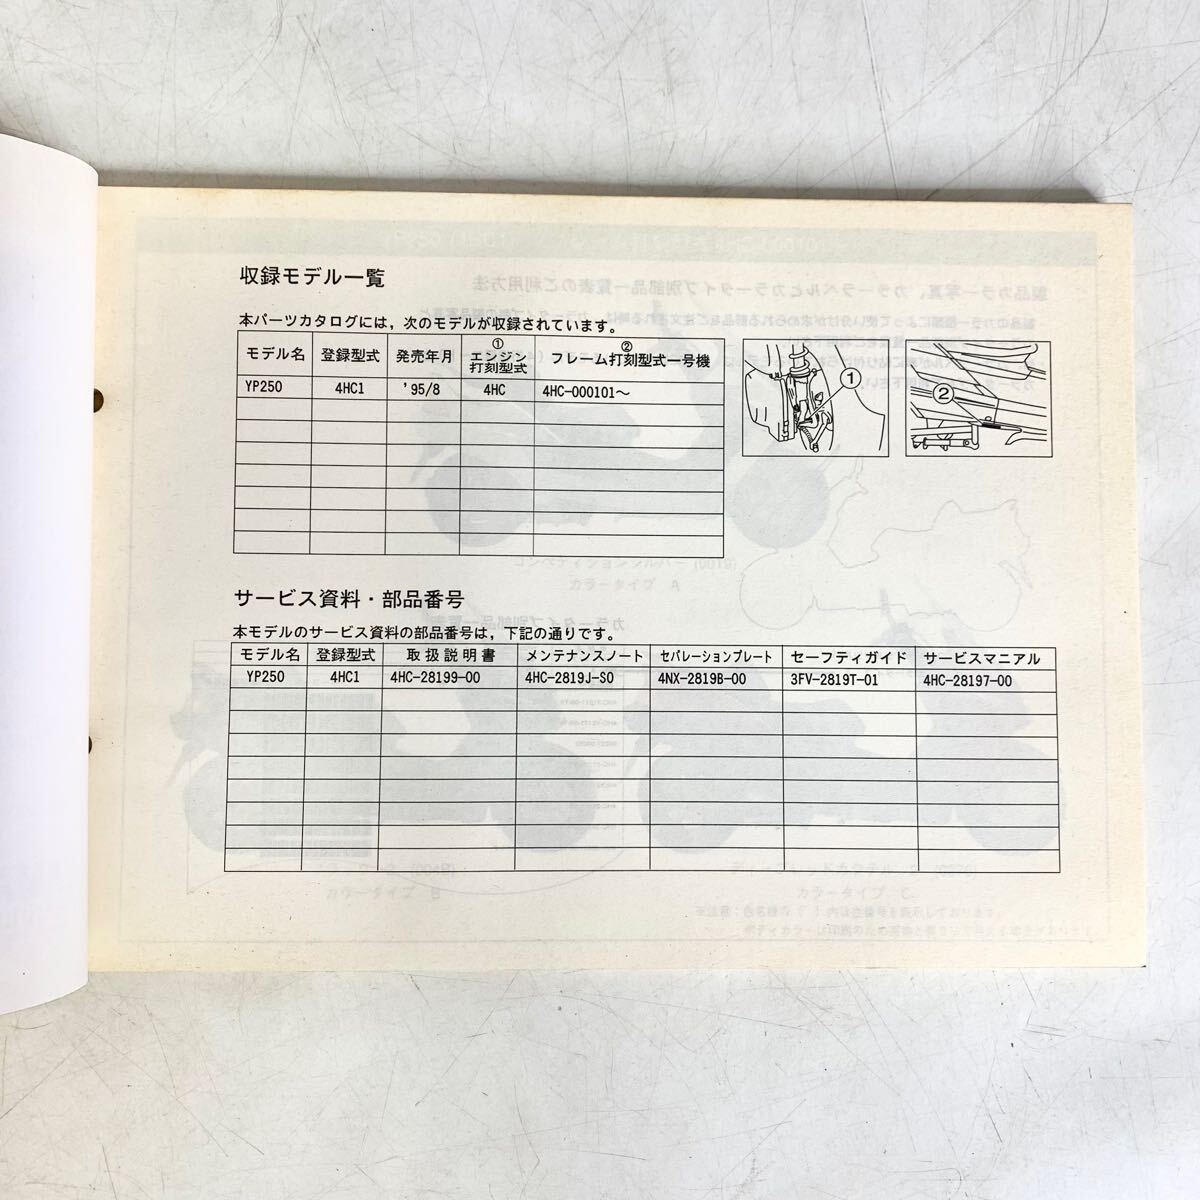 収録モデル一覧
本パーツカタログには，次のモデルが収録されています。
モデル名 登録型式 発売年月 ① エンジン打刻型式 ② フレーム打刻型式一号機
YP250 4HC1 '95/8 4HC 4HC-000101～
①
②
サービス資料・部品番号
本モデルのサービス資料の部品番号は，下記の通りです。
モデル名 登録型式 取扱説明書 メンテナンスノート セパレーションプレート セーフティガイド サービスマニアル
YP250 4HC1 4HC-28199-00 4HC-2819J-S0 4NX-2819B-00 3FV-2819T-01 4HC-28197-00